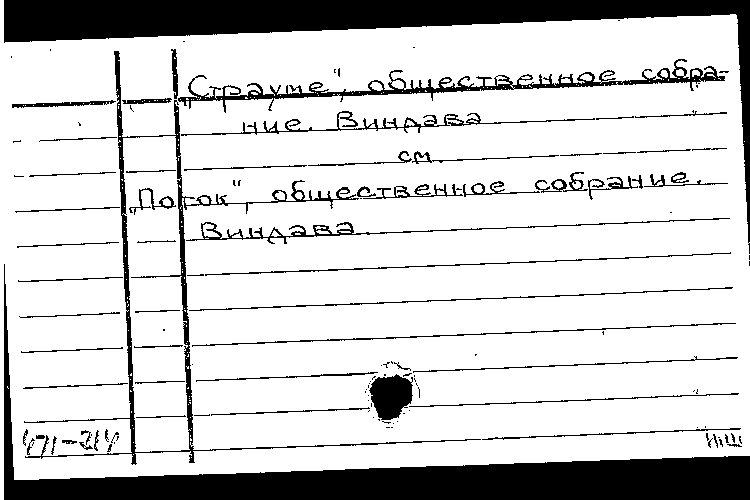 „Страуме", общественное собра-
ние. Виндава
см.
„Поток", общественное собрание.
Виндава.
471-214